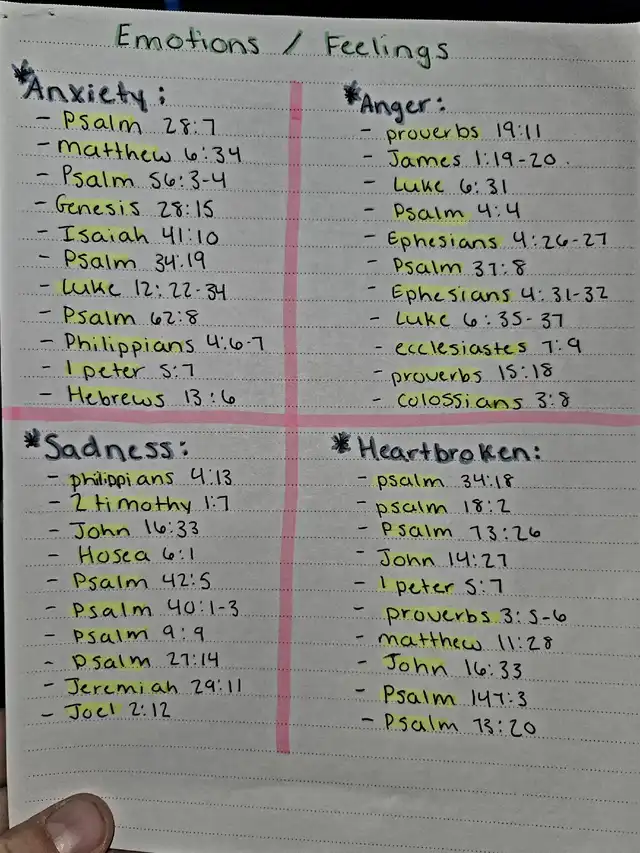 Emotions / Feelings
*Anxiety:
- Psalm 28:7
- matthew 6:34
- Psalm 56:3-4
- Genesis 28:15
- Isaiah 41:10
- Psalm 34:19
- Luke 12:22-34
- Psalm 62:8
- Philippians 4:6-7
- 1 peter 5:7
- Hebrews 13:6
*Anger:
- proverbs 19:11
- James 1:19-20
- Luke 6:31
- Psalm 4:4
- Ephesians 4:26-27
- Psalm 37:8
- Ephesians 4:31-32
- Luke 6:35-37
- ecclesiastes 7:9
- proverbs 15:18
- colossians 3:8
*Sadness:
- philippians 4:13
- 2 timothy 1:7
- John 16:33
- Hosea 6:1
- Psalm 42:5
- Psalm 40:1-3
- Psalm 9:9
- Psalm 27:14
- Jeremiah 29:11
- Joel 2:12
*Heartbroken:
- psalm 34:18
- psalm 18:2
- Psalm 73:26
- John 14:27
- 1 peter 5:7
- proverbs 3:5-6
- matthew 11:28
- John 16:33
- Psalm 147:3
- Psalm 73:20